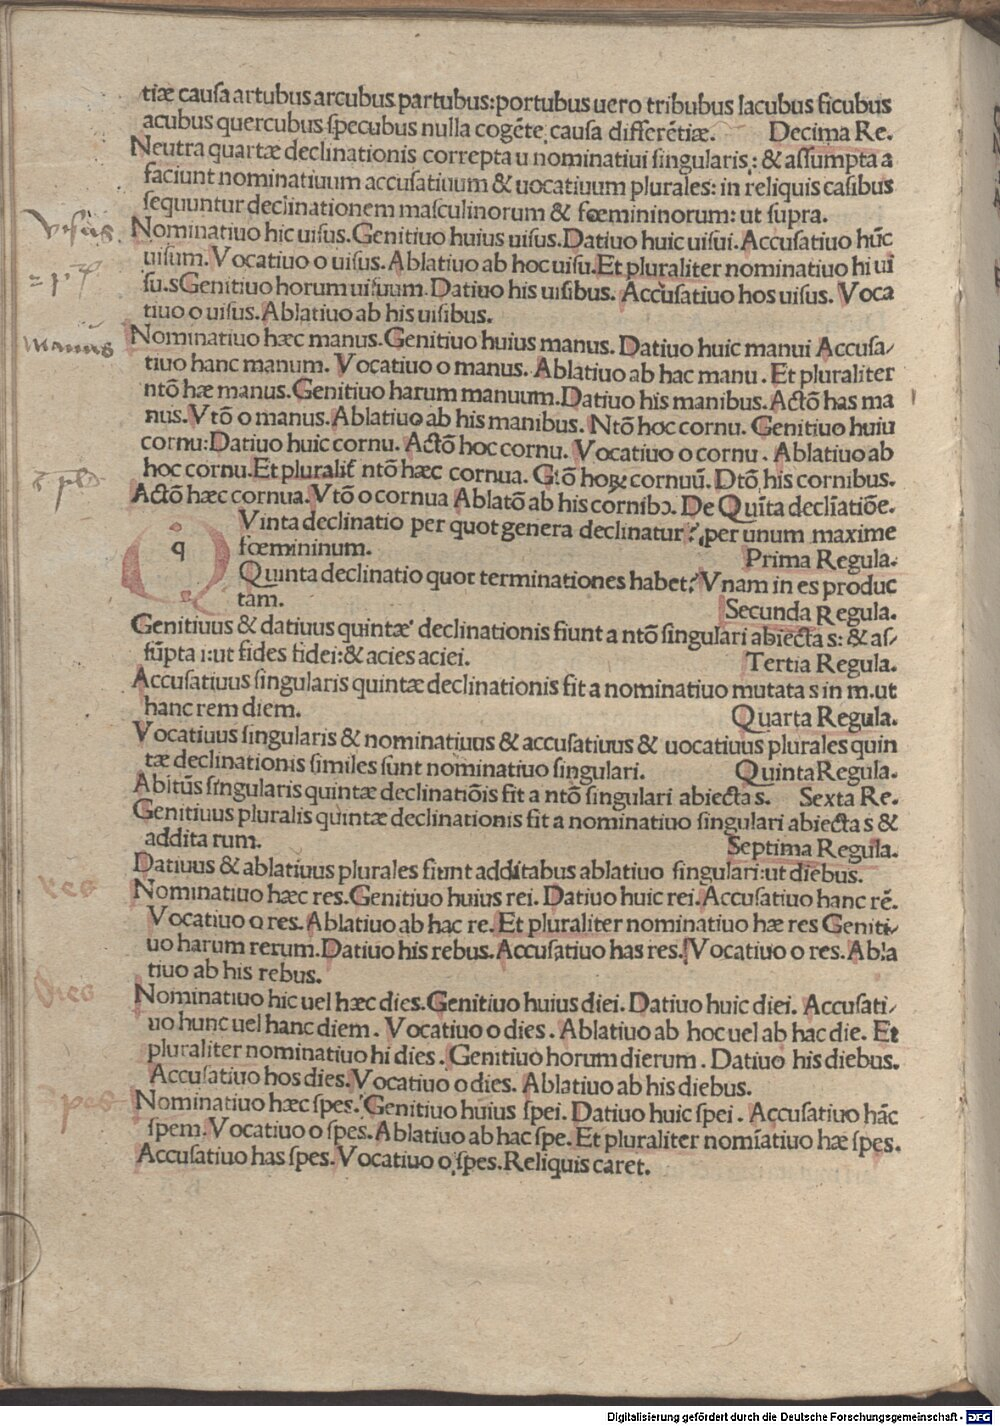 tiæ cauſa artubus arcubus partubus: portubus uero tribubus lacubus ficubus
acubus quercubus ſpecubus nulla cogēte cauſa differētiæ. Decima Re.
Neutra quartæ declinationis correpta u nominatiui ſingularis: & aſſumpta a
faciunt nominatiuum accuſatiuum & uocatiuum plurales: in reliquis caſibus
ſequuntur declinationem maſculinorum & fœmininorum: ut ſupra.
Nominatiuo hic uiſus. Genitiuo huius uiſus. Datiuo huic uiſui. Accuſatiuo hūc
uiſum. Vocatiuo o uiſus. Ablatiuo ab hoc uiſu. Et pluraliter nominatiuo hi ui
ſu.sGenitiuo horum uiſuum. Datiuo his uiſibus. Accuſatiuo hos uiſus. Voca
tiuo o uiſus. Ablatiuo ab his uiſibus.
Nominatiuo hæc manus. Genitiuo huius manus. Datiuo huic manui Accuſa/
tiuo hanc manum. Vocatiuo o manus. Ablatiuo ab hac manu. Et pluraliter
ntō hæ manus. Genitiuo harum manuum. Datiuo his manibus. Actō has ma
nus. Vtō o manus. Ablatiuo ab his manibus. Ntō hoc cornu. Genitiuo huiu
cornu: Datiuo huic cornu. Actō hoc cornu. Vocatiuo o cornu. Ablatiuo ab
hoc cornu. Et pluralit̄ ntō hæc cornua. Gtō hoꝝ cornuū. Dtō his cornibus.
Actō hæc cornua. Vtō o cornua Ablatō ab his cornibꝰ. De Quīta declīatiōe.
q
Vinta declinatio per quot genera declinatur? per unum maxime
fœmininum. Prima Regula.
Quinta declinatio quot terminationes habet? Vnam in es produc
tam. Secunda Regula.
Genitiuus & datiuus quintæ declinationis fiunt a ntō ſingulari abiecta s: & aſ/
ſūpta i: ut fides fidei: & acies aciei. Tertia Regula.
Accuſatiuus ſingularis quintæ declinationis fit a nominatiuo mutata s in m. ut
hanc rem diem. Quarta Regula.
Vocatiuus ſingularis & nominatiuus & accuſatiuus & uocatiuus plurales quin
tæ declinationis ſimiles ſunt nominatiuo ſingulari. Quinta Regula.
Abitūs ſingularis quintæ declinatiōis fit a ntō ſingulari abiecta s. Sexta Re.
Genitiuus pluralis quintæ declinationis fit a nominatiuo ſingulari abiecta s &
addita rum. Septima Regula.
Datiuus & ablatiuus plurales fiunt addita bus ablatiuo ſingulari: ut diebus.
Nominatiuo hæc res. Genitiuo huius rei. Datiuo huic rei. Accuſatiuo hanc rē.
Vocatiuo o res. Ablatiuo ab hac re. Et pluraliter nominatiuo hæ res Geniti/
uo harum rerum. Datiuo his rebus. Accuſatiuo has res. Vocatiuo o res. Abla
tiuo ab his rebus.
Nominatiuo hic uel hæc dies. Genitiuo huius diei. Datiuo huic diei. Accuſati/
uo hunc uel hanc diem. Vocatiuo o dies. Ablatiuo ab hoc uel ab hac die. Et
pluraliter nominatiuo hi dies. Genitiuo horum dierum. Datiuo his diebus.
Accuſatiuo hos dies. Vocatiuo o dies. Ablatiuo ab his diebus.
Nominatiuo hæc ſpes. Genitiuo huius ſpei. Datiuo huic ſpei. Accuſatiuo hāc
ſpem. Vocatiuo o ſpes. Ablatiuo ab hac ſpe. Et pluraliter nomīatiuo hæ ſpes.
Accuſatiuo has ſpes. Vocatiuo o ſpes. Reliquis caret.
manus
res
dies
Digitalisierung gefördert durch die Deutsche Forschungsgemeinschaft - DFG